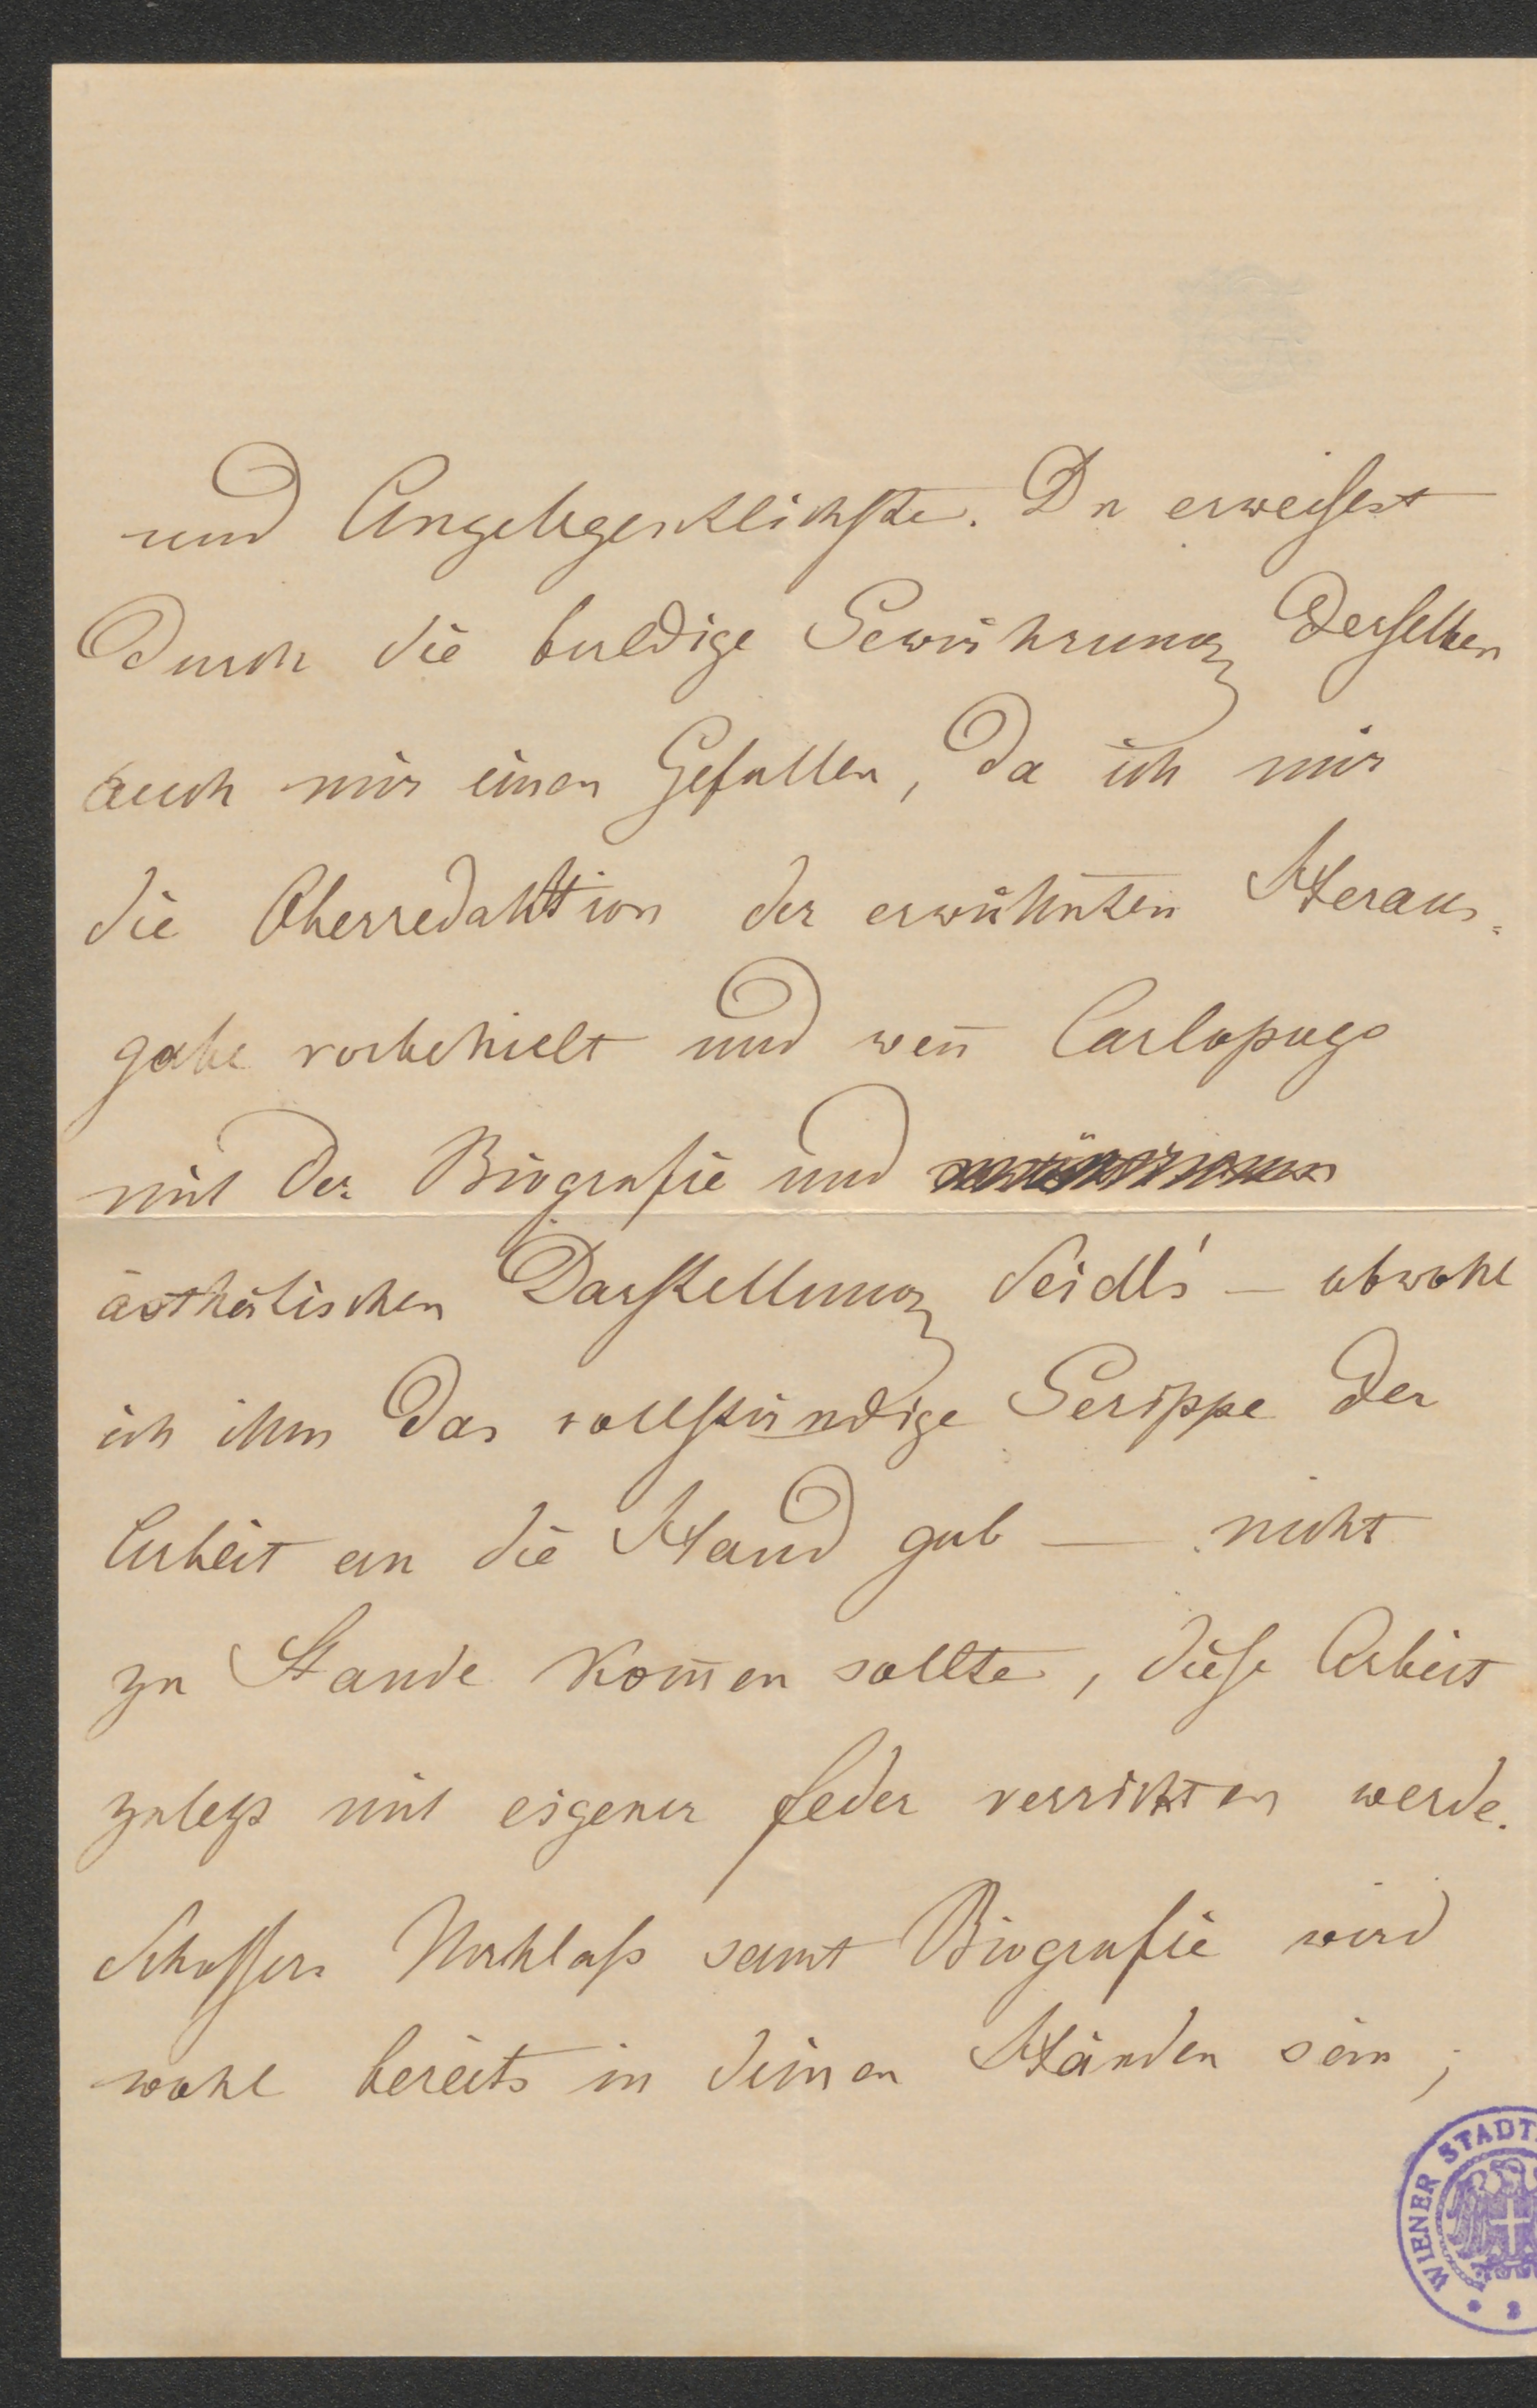 und Angelegentlichste. Du erweisest
durch die baldige Gewährung derselben
auch mir einen Gefallen, da ich mir
die Oberredaktion der erwähnten Heraus=
gabe vorbehielt und weñ Carlopago
mit der Biografie und
ästhetischen Darstellung Seidl's – obwohl
ich ihm das vollständige Gerippe der
Arbeit an die Hand gab – nicht
zu Stande kom̅en sollte, diese Arbeit
zuletzt mit eigener Feder verrichten werde.
Schossers Nachlaß samt Biografie wird
wohl bereits in deinen Händen sein;
WIENER STADT